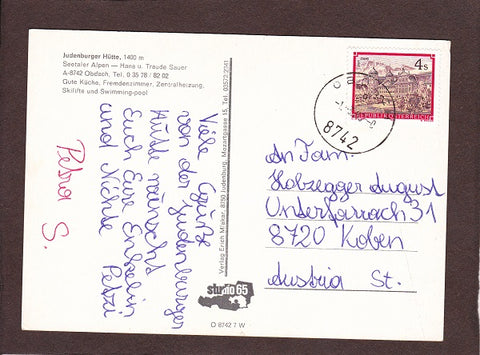 Judenburger Hütte, 1400 m
Seetaler Alpen — Hans u. Traude Sauer
A-8742 Obdach, Tel. 0 35 78 / 82 02
Gute Küche, Fremdenzimmer, Zentralheizung,
Skilifte und Swimming-pool
Viele Grüße
von der Judenburger
Hütte wünscht
Euch Eure Enkelin
und Nichte
Petzi
Petra S.
Verlag Erich Mlakar, 8750 Judenburg, Mozartgasse 15, Tel. 03572/2541
studio 65
D 8742 7 W
4 S
REPUBLIK ÖSTERREICH
8742
An Fam.
Hobzegger August
Unterfarrach 31
8720 Koben
Austria St.